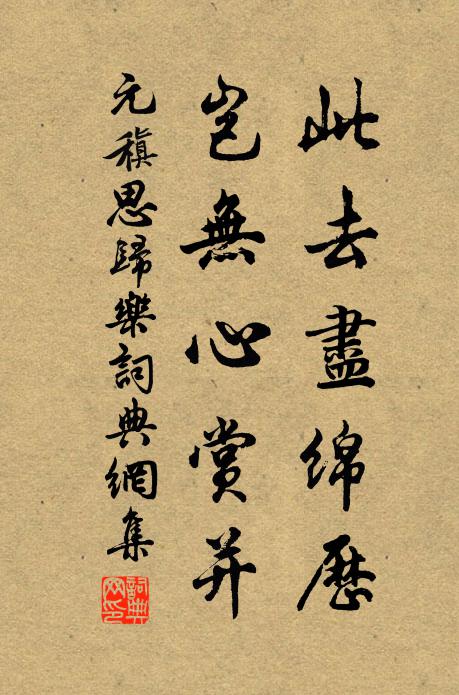 此去盡綿歷
豈無心賞并
元稹思歸樂詞典網集
詞典網印